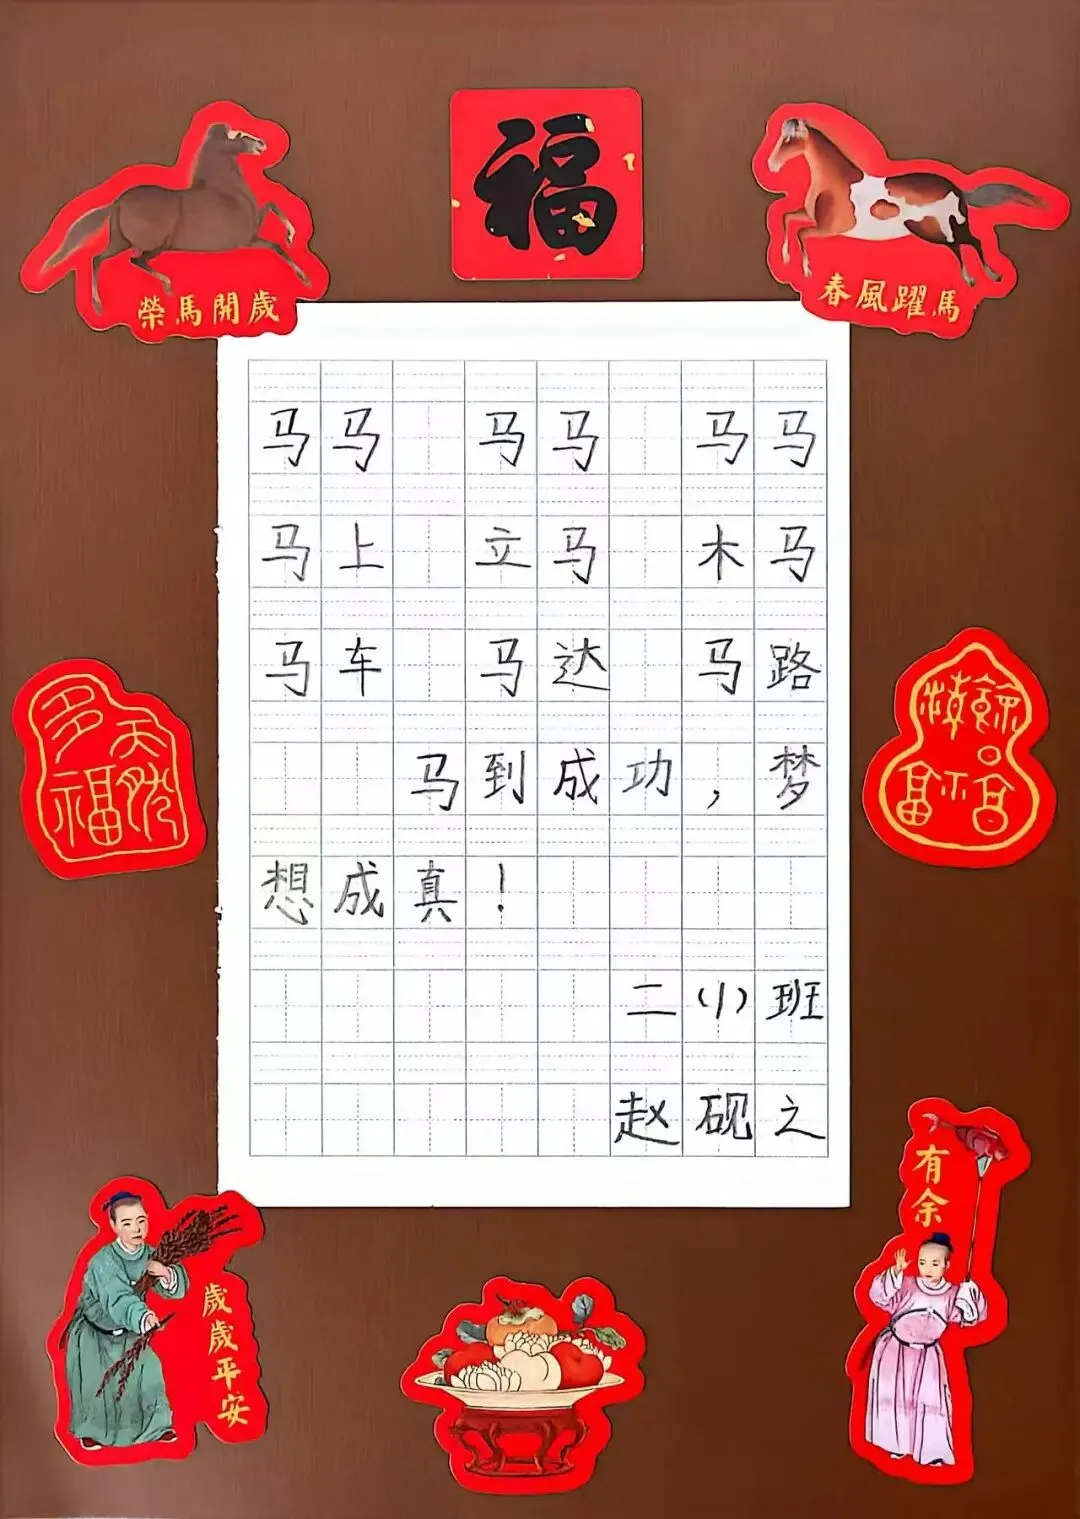 福
榮馬開歲
春風躍馬
马马 马马 马马
马上 立马 木马
马车 马达 马路
马到成功，梦
想成真！
二(1)班
赵砚之
歲歲平安
有余